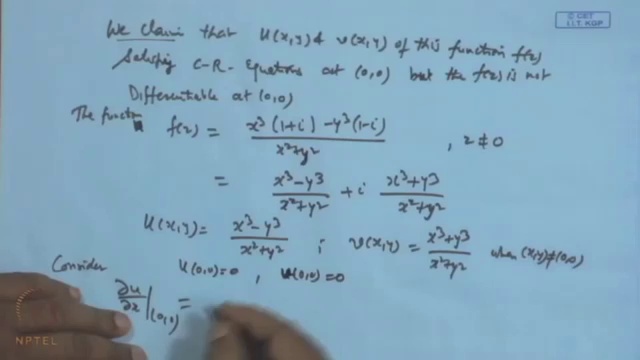 © CET
I.I.T. KGP
We claim that u(x,y) & v(x,y) of this function f(z)
Satisfy C-R- Equations at (0,0) but the f(z) is not
Differentiable at (0,0)
The functn f(z) = x³(1+i) - y³(1-i) / x²+y² , z ≠ 0
= x³-y³ / x²+y² + i x³+y³ / x²+y²
u(x,y) = x³-y³ / x²+y² ; v(x,y) = x³+y³ / x²+y² when (x,y)≠(0,0)
Consider u(0,0)=0 , v(0,0)=0
∂u/∂x |(0,0) =
NPTEL